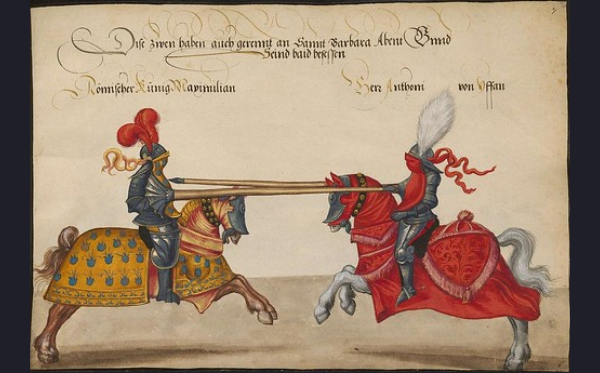 Dise zwen haben auch gerennt an Sannt Barbara Abent Unnd
Seind baid besessen
Römischer Künig Maximilian
Herr Anthoni von Yffan